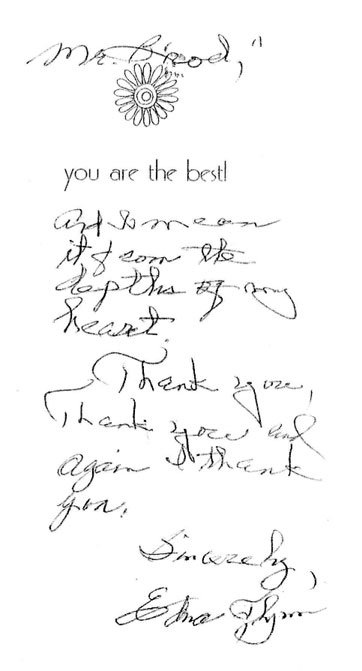 Mr. B'rod,"
you are the best!
And I mean
it from the
depths of my
heart.
Thank you,
Thank you and
again I thank
you.
Sincerely,
Edna Flynn